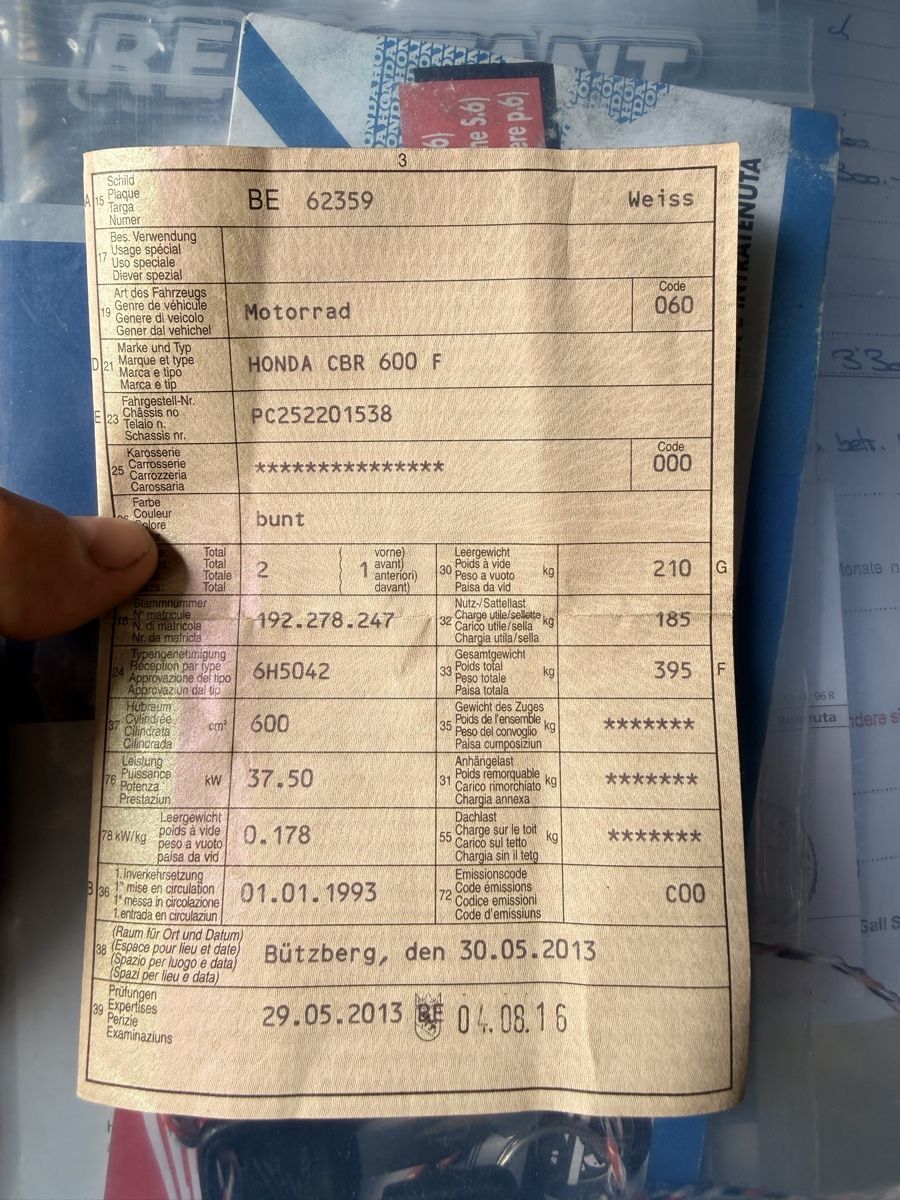 3
A 15 Schild
Plaque
Targa
Numer
BE 62359 Weiss
17 Bes. Verwendung
Usage spécial
Uso speciale
Diever spezial
19 Art des Fahrzeugs
Genre de véhicule
Genere di veicolo
Gener dal vehichel
Motorrad
Code
060
D 21 Marke und Typ
Marque et type
Marca e tipo
Marca e tip
HONDA CBR 600 F
E 23 Fahrgestell-Nr.
Châssis no
Telaio n.
Schassis nr.
PC252201538
25 Karosserie
Carrosserie
Carrozzeria
Carossaria
***************
Code
000
Farbe
Couleur
bunt
Total
Total
Totale
Total
2
1
vorne)
avant)
anteriori)
davant)
30 Leergewicht
Poids à vide
Peso a vuoto
Paisa da vid
kg
210 G
18 Stammnummer
N° matricule
N. di matricola
Nr. da matricla
192.278.247
32 Nutz-/Sattellast
Charge utile/sellette
Carico utile/sella
Chargia utila/sella
kg
185
24 Typengenehmigung
Réception par type
Approvazione del tipo
Approvaziun dal tip
6H5042
33 Gesamtgewicht
Poids total
Peso totale
Paisa totala
kg
395 F
37 Hubraum
Cylindrée
Cilindrata
Cilindrada
cm³
600
35 Gewicht des Zuges
Poids de l'ensemble
Peso del convoglio
Paisa cumposiziun
kg
*******
76 Leistung
Puissance
Potenza
Prestaziun
kW
37.50
31 Anhängelast
Poids remorquable
Carico rimorchiato
Chargia annexa
kg
*******
78 kW/kg
Leergewicht
poids à vide
peso a vuoto
paisa da vid
0.178
55 Dachlast
Charge sur le toit
Carico sul tetto
Chargia sin il tetg
kg
*******
B 36 1. Inverkehrsetzung
1re mise en circulation
1a messa in circolazione
1. entrada en circulaziun
01.01.1993
72 Emissionscode
Code émissions
Codice emissioni
Code d'emissiuns
C00
38 (Raum für Ort und Datum)
(Espace pour lieu et date)
(Spazio per luogo e data)
(Spazi per lieu e data)
Bützberg, den 30.05.2013
39 Prüfungen
Expertises
Perizie
Examinaziuns
29.05.2013 BE 04.08.16